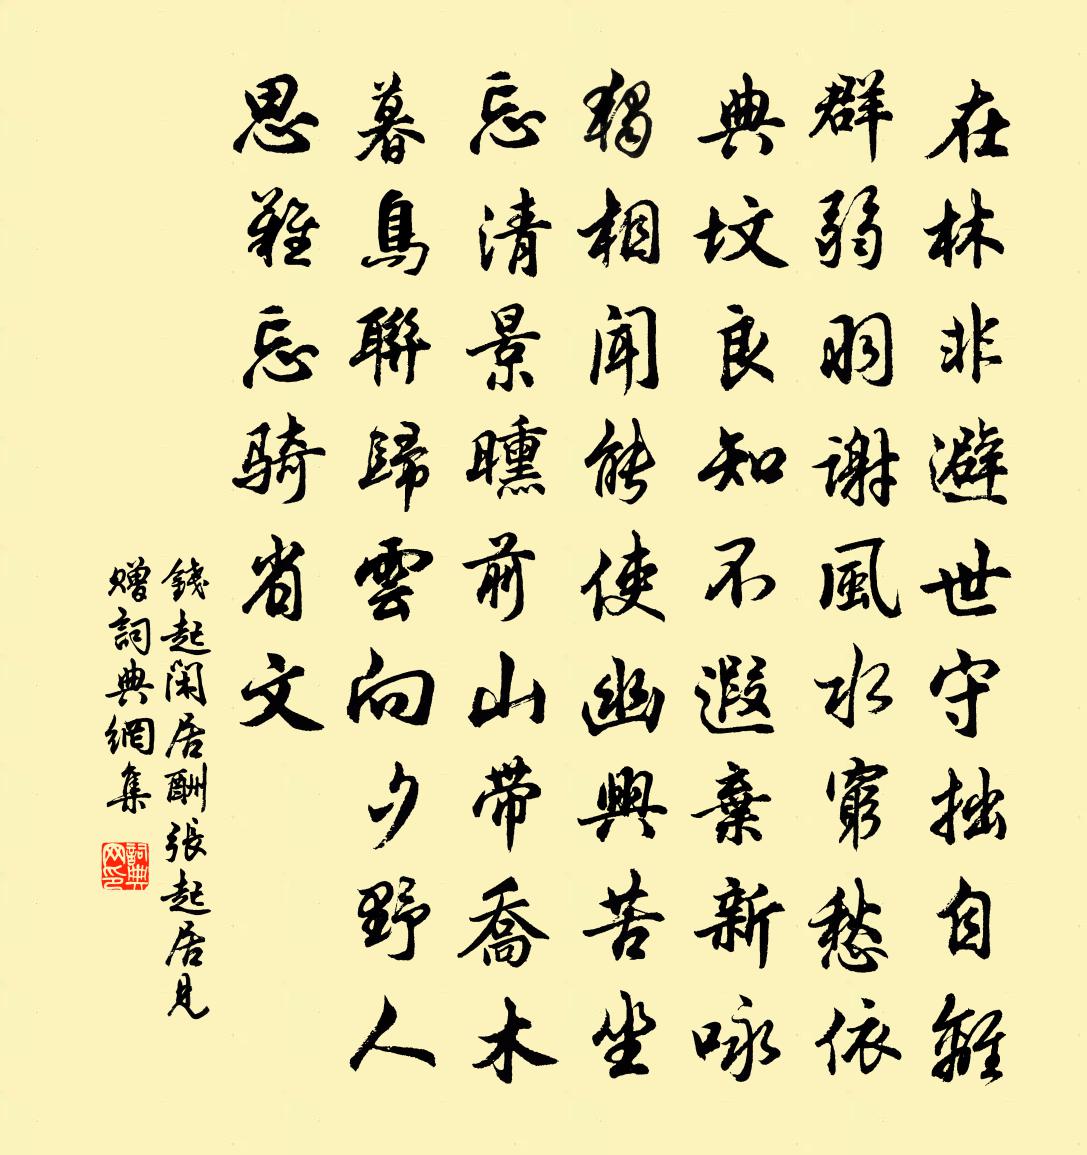 在林非避世守拙自離
群弱羽謝風水窮愁依
典坟良知不遐棄新咏
獨相聞能使幽興苦坐
忘清景曛前山帶喬木
暮鳥聯歸雲向夕野人
思難忘騎省文
錢起閑居酬張起居見
贈詞典網集
詞典
网印